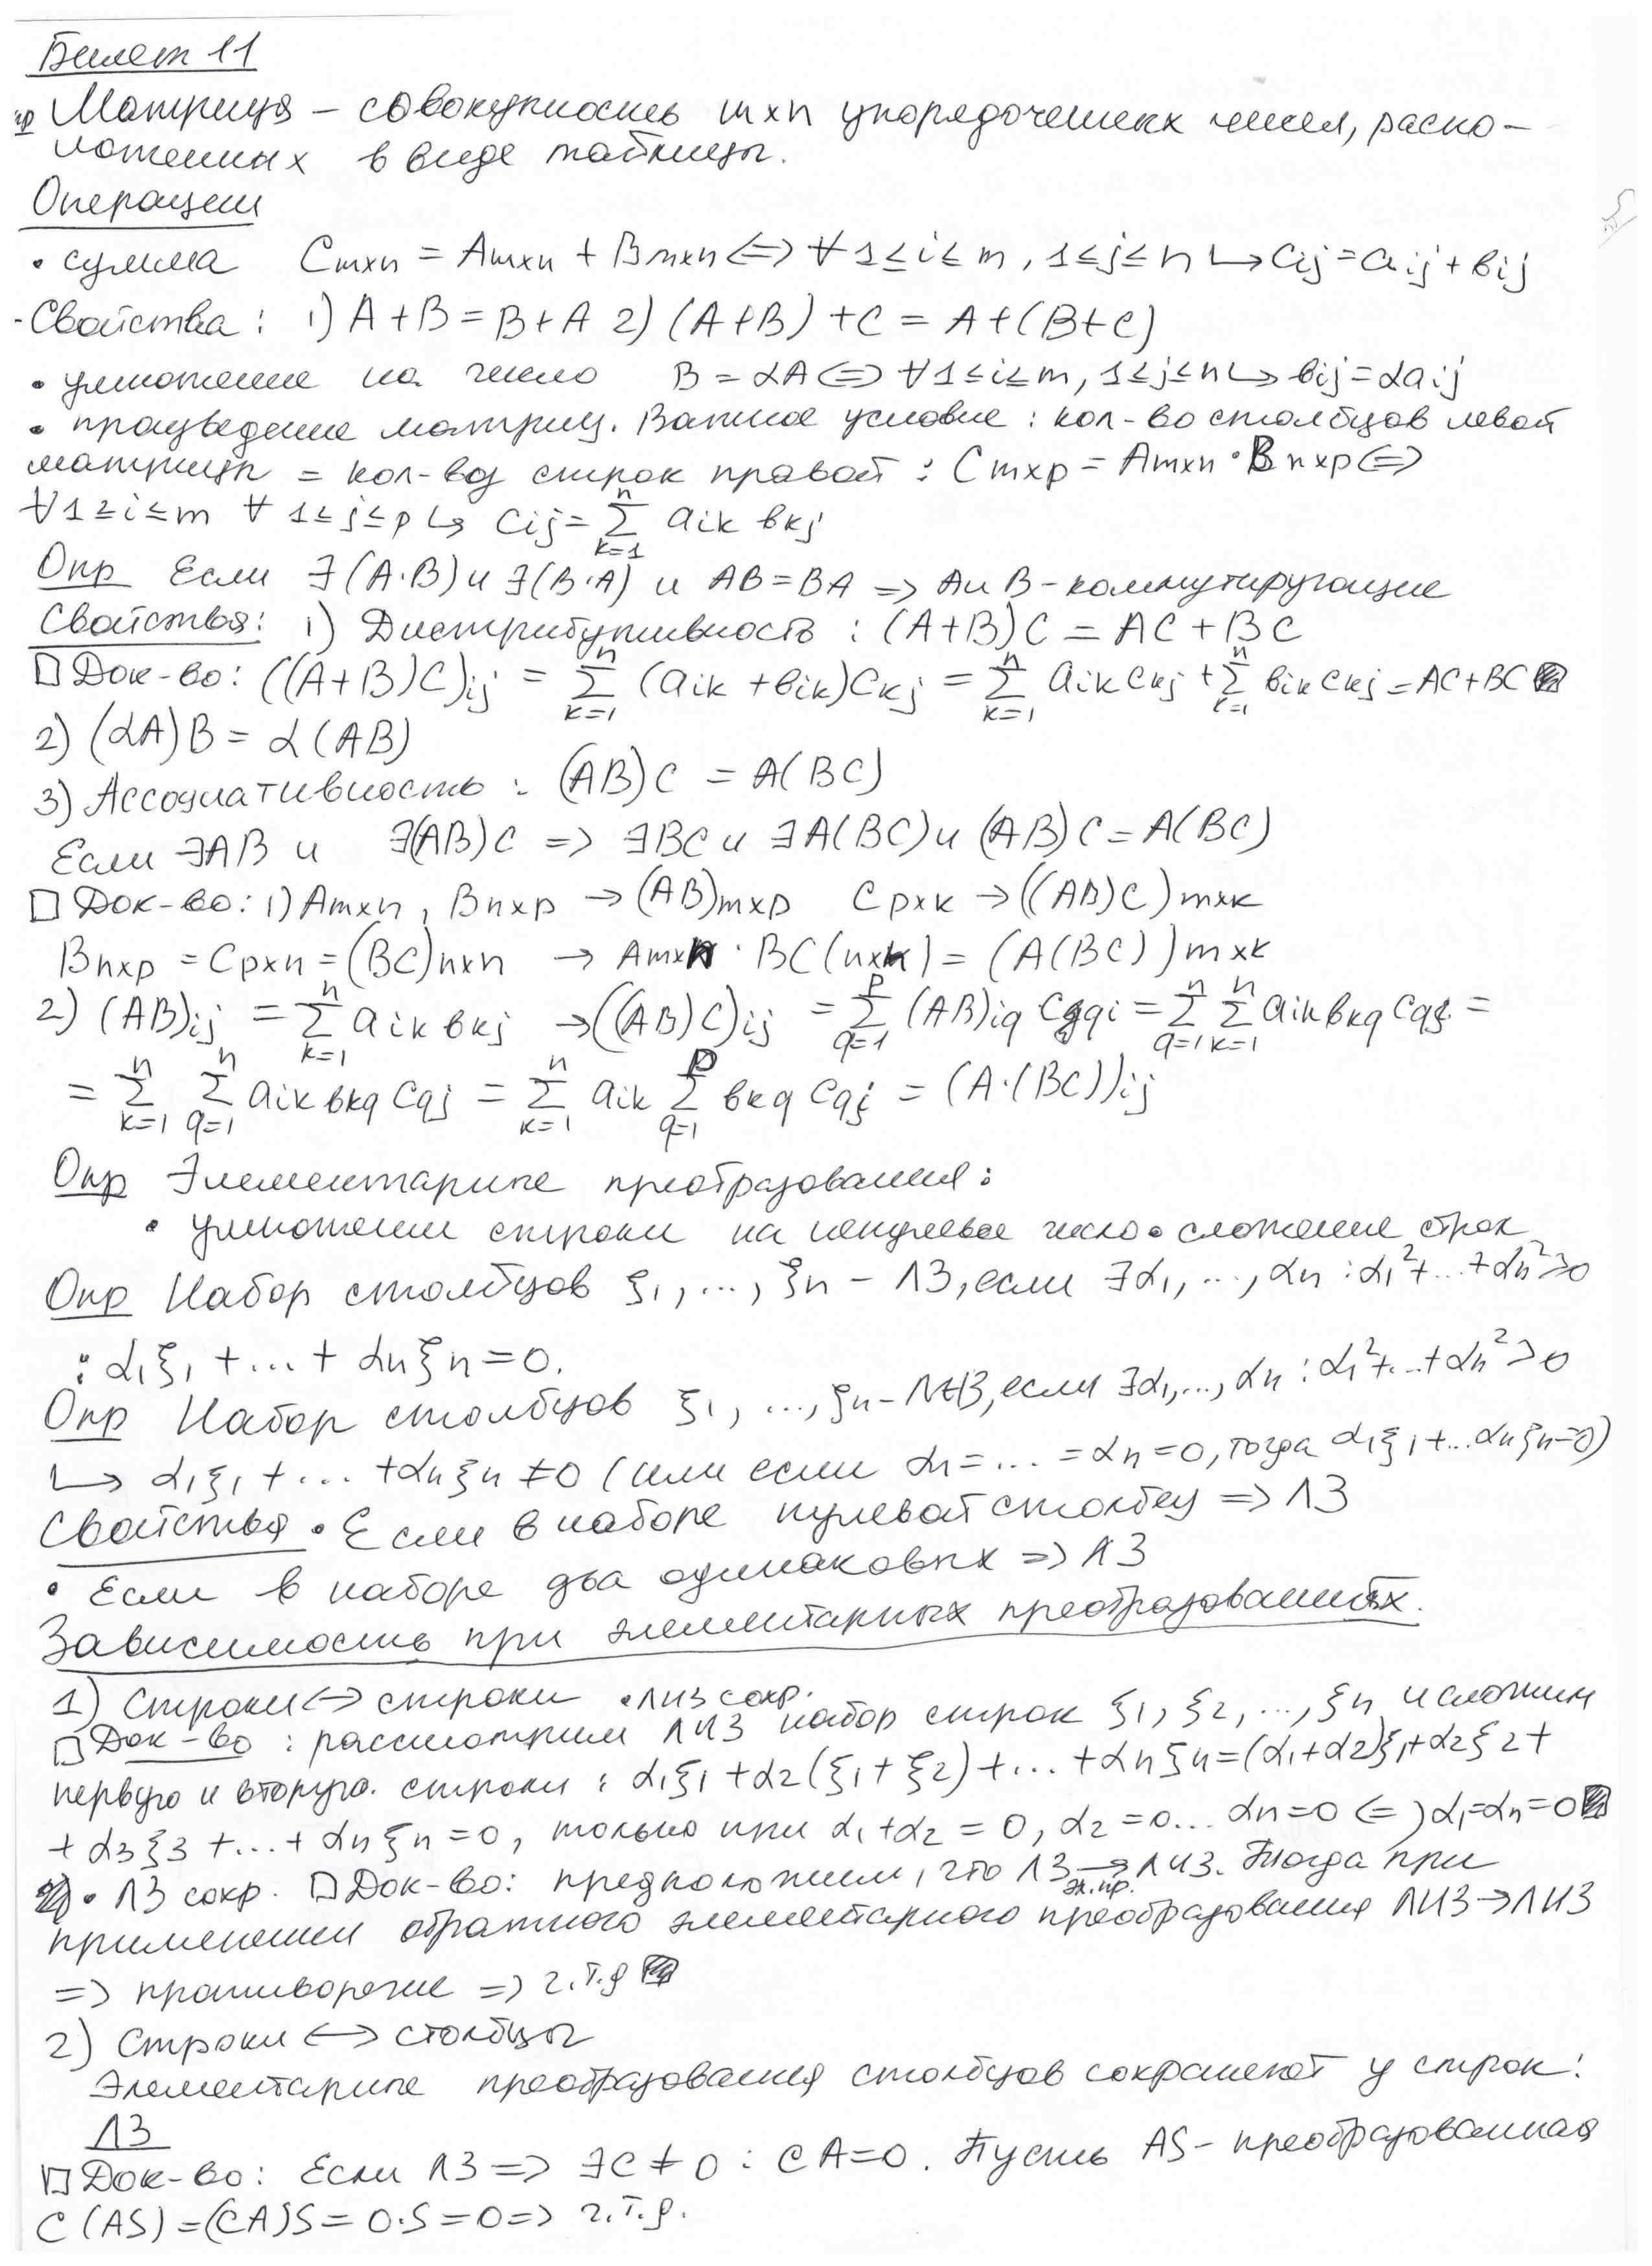 Билет 11
Опр Матрица – совокупность m×n упорядоченных чисел, распо-
ложенных в виде таблицы.
Операции
• сумма C m×n = A m×n + B m×n <=> ∀ 1≤i≤m, 1≤j≤n ↪ cij = aij + bij
- Свойства: 1) A+B = B+A 2) (A+B)+C = A+(B+C)
• умножение на число B = αA <=> ∀ 1≤i≤m, 1≤j≤n ↪ bij = αaij
• произведение матриц. Важное условие: кол-во столбцов левой
матрицы = кол-во строк правой: C m×p = A m×n · B n×p <=>
∀ 1≥i≤m ∀ 1≤j≤p ↪ cij = Σ(k=1..n) aik bkj
Опр Если ∃(A·B) и ∃(B·A) и AB=BA => A и B – коммутирующие
Свойства: 1) Дистрибутивность: (A+B)C = AC+BC
□ Док-во: ((A+B)C)ij = Σ(k=1..n) (aik+bik)ckj = Σ(k=1..n) aik ckj + Σ(k=1..n) bik ckj = AC+BC ■
2) (αA)B = α(AB)
3) Ассоциативность: (AB)C = A(BC)
Если ∃AB и ∃(AB)C => ∃BC и ∃A(BC) и (AB)C = A(BC)
□ Док-во: 1) A m×n, B n×p → (AB)m×p C p×k → ((AB)C)m×k
B n×p = C p×n = (BC)n×n → A m×n · BC(n×k) = (A(BC))m×k
2) (AB)ij = Σ(k=1..n) aik bkj → ((AB)C)ij = Σ(q=1..p) (AB)iq cqi = Σ(q=1..n) Σ(k=1..n) aik bkq cqj =
= Σ(k=1..n) Σ(q=1..n) aik bkq cqj = Σ(k=1..n) aik Σ(q=1..p) bkq cqj = (A·(BC))ij
Опр Элементарные преобразования:
• умножении строки на ненулевое число • сложение строк
Опр Набор столбцов ξ1, ..., ξn – ЛЗ, если ∃α1, ..., αn : α1²+...+αn²>0
: α1ξ1 + ... + αnξn = 0.
Опр Набор столбцов ξ1, ..., ξn – ЛНЗ, если ∃α1, ..., αn : α1²+...+αn²>0
↪ α1ξ1 + ... + αnξn ≠ 0 (или если α1 = ... = αn = 0, тогда α1ξ1+...αnξn=0)
Свойства • Если в наборе нулевой столбец => ЛЗ
• Если в наборе два одинаковых => ЛЗ
Зависимость при элементарных преобразованиях.
1) Строки <-> строки • ЛНЗ сохр.
□ Док-во: рассмотрим ЛНЗ набор строк ξ1, ξ2, ..., ξn и сложим
первую и вторую строки: α1ξ1 + α2(ξ1+ξ2) + ... + αnξn = (α1+α2)ξ1 + α2ξ2 +
+ α3ξ3 + ... + αnξn = 0, только при α1+α2 = 0, α2 = 0... αn = 0 <=> α1=αn=0 ■
• ЛЗ сохр. □ Док-во: предположим, что ЛЗ → эл.пр. ЛНЗ. Тогда при
применении обратного элементарного преобразования ЛНЗ → ЛНЗ
=> противоречие => ч.т.д ■
2) Строки <-> столбцы
Элементарные преобразования столбцов сохраняют у строк:
ЛЗ
□ Док-во: Если ЛЗ => ∃C ≠ 0 : CA=0. Пусть AS – преобразованная
C(AS) = (CA)S = 0·S = 0 => ч.т.д.